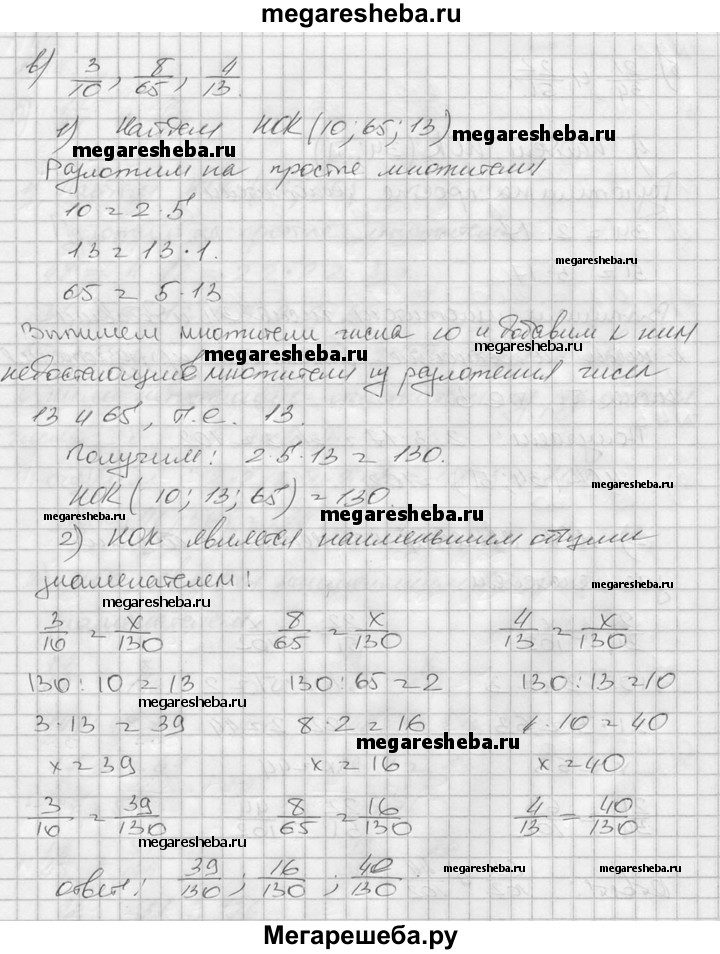 megaresheba.ru
в) 3/10, 8/65, 4/13.
1) Найдем НОК(10; 65; 13)
megaresheba.ru
megaresheba.ru
Разложим на простые множители
10 = 2·5
13 = 13·1.
megaresheba.ru
65 = 5·13
Выпишем множители числа 10 и добавим к ним
megaresheba.ru
megaresheba.ru
недостающие множители из разложения чисел
13 и 65, т.е. 13.
Получим: 2·5·13 = 130.
megaresheba.ru
НОК(10; 13; 65) = 130
megaresheba.ru
megaresheba.ru
2) НОК является наименьшим общим
знаменателем:
megaresheba.ru
megaresheba.ru
3/10 = x/130 8/65 = x/130 4/13 = x/130
130 : 10 = 13 130 : 65 = 2 130 : 13 = 10
megaresheba.ru
3·13 = 39 8·2 = 16 4·10 = 40
megaresheba.ru
x = 39 x = 16 x = 40
3/10 = 39/130 8/65 = 16/130 4/13 = 40/130
megaresheba.ru
megaresheba.ru
megaresheba.ru
ответ: 39/130; 16/130; 40/130.
Мегарешеба.ру